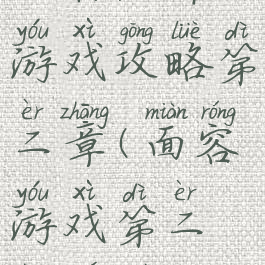 yóu xì gōng lüè dì
游戏攻略第
èr zhāng miàn róng
二章(面容
yóu xì dì èr
游戏第二